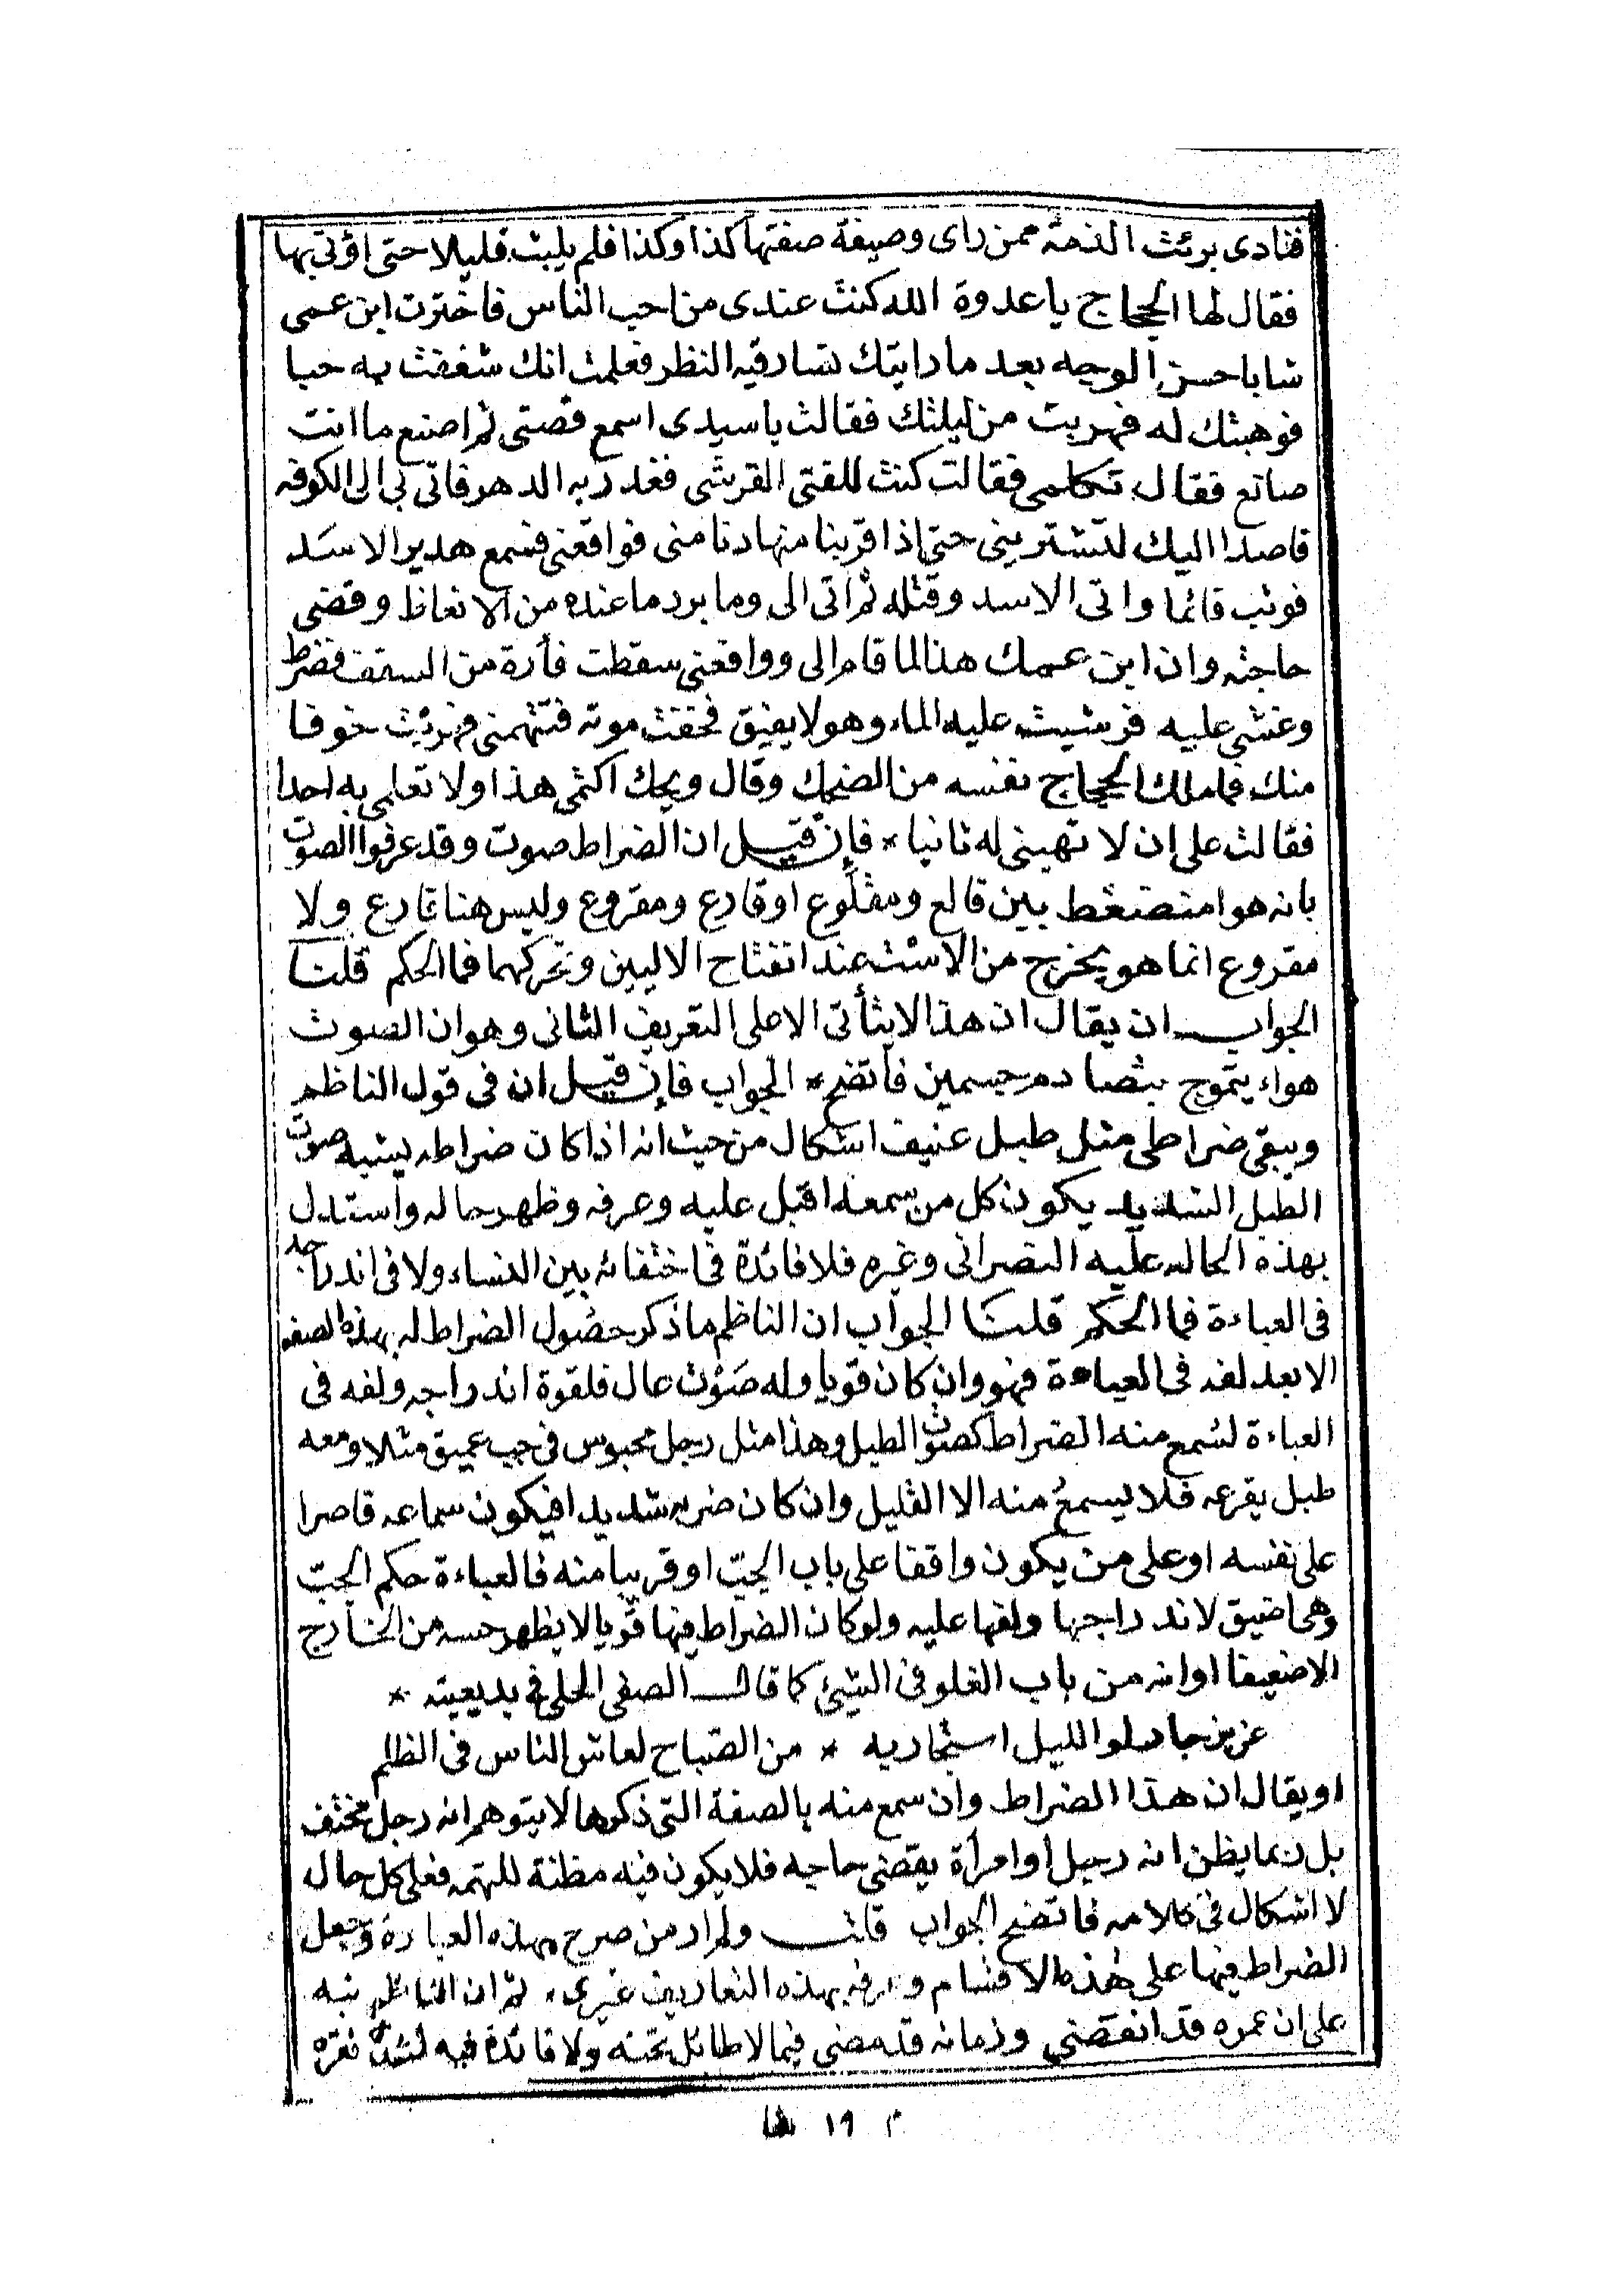 فنادى برئت الذمة ممن راى وصيفة صفتها كذا وكذا فلم يلبث قليلا حتى اوتى بها
فقال لها الحجاج ياعدوة الله كنت عندى من احب الناس فاخترت ابن عمى
شابا حسن الوجه بعد ما رايتك تسارقيه النظر فعلمت انك شغفت به حبا
فوهبتك له فهربت من ليلتك فقالت ياسيدى اسمع قصتى ثم اصنع ما انت
صانع فقال تكلمى فقالت كنت للفتى القرشى فغدر به الدهر فاتى بى الى الكوفه
قاصدا اليك لتشترينى حتى اذا قربنا منها دنا منى فواقعنى فسمع هدير الاسد
فوثب قائما واتى الاسد وقتله ثم اتى الى وما برد ما عنده من الانعاظ وقضى
حاجته وان ابن عمك هذا لما قام الى وواقعنى سقطت فأرة من السقف فضرط
وغشى عليه فرشيت عليه الماء وهو لا يفيق فخفت موته فتتهمنى فهربت خوفا
منك فما ملك الحجاج نفسه من الضحك وقال ويحك اكتمى هذا ولا تعلمى به احدا
فقالت على ان لا تهبنى له ثانيا * فإن قيل ان الضراط صوت وقد عرفوا الصوت
بانه هوا منضغط بين قالع ومقلوع او قارع ومقروع وليس هنا قارع ولا
مقروع انما هو يخرج من الاست عند انفتاح الاليين وتحركهما فما الحكم قلنا
الجواب ان يقال ان هذا لا يتأتى الا على التعريف الثانى وهو ان الصوت
هواء يتموج بتصادم جسمين فاتضح * الجواب فإن قيل ان فى قول الناظم
ويبقى ضراطى مثل طبل عنيف اشكال من حيث انه اذا كان ضراطه يشبه صوت
الطبل الشديد يكون كل من سمعه اقبل عليه وعرفه وظهر حاله واستدل
بهذه الحاله عليه النصرانى وغيره فلا فائدة فى اختفائه بين النساء ولا فى اندراجه
فى العباءة فما الحكم قلنا الجواب ان الناظم ما ذكر حصول الضراط له بهذه الصفه
الا بعد لفه فى العباءة فهو وان كان قويا وله صوت عال فلقوة اندراجه ولفه فى
العباءة لسمع منه الضراط كصوت الطبل وهذا مثل رجل محبوس فى جب عميق مثلا ومعه
طبل يقرعه فلا يسمع منه الا القليل وان كان ضربه شديدا فيكون سماعه قاصرا
على نفسه او على من يكون واقفا على باب الجب او قريبا منه فالعباءة حكم الجب
وهى اضيق لاندراجها ولفها عليه ولو كان الضراط فيها قويا لا يظهر حسه من الخارج
الا ضعيفا او انه من باب الغلو فى الشئ كما قال الصفى الحلى فى بديعيته *
عزيز جار لو الليل استجار به * من الصباح لعاش الناس فى الظلم
او يقال ان هذا الضراط وان سمع منه بالصفة التى ذكرها لا يتوهم انه رجل مختف
بل ربما يظن انه رجل او امرأة يقضى حاجه فلا يكون فيه مظنة للتهمه فعلى كل حال
لا اشكال فى كلامه فاتضح الجواب قلت ولم ار من صرح بهذه العبارة وجعل
الضراط فيها على هذه الاقسام وعرفه بهذه التعاريف غيرى ، ثم ان الناظم نبه
على ان عمره قد انقضى وزمانه قد مضى فيما لا طائل تحته ولا فائدة فيه لشدة فقره
م ١٩ شا